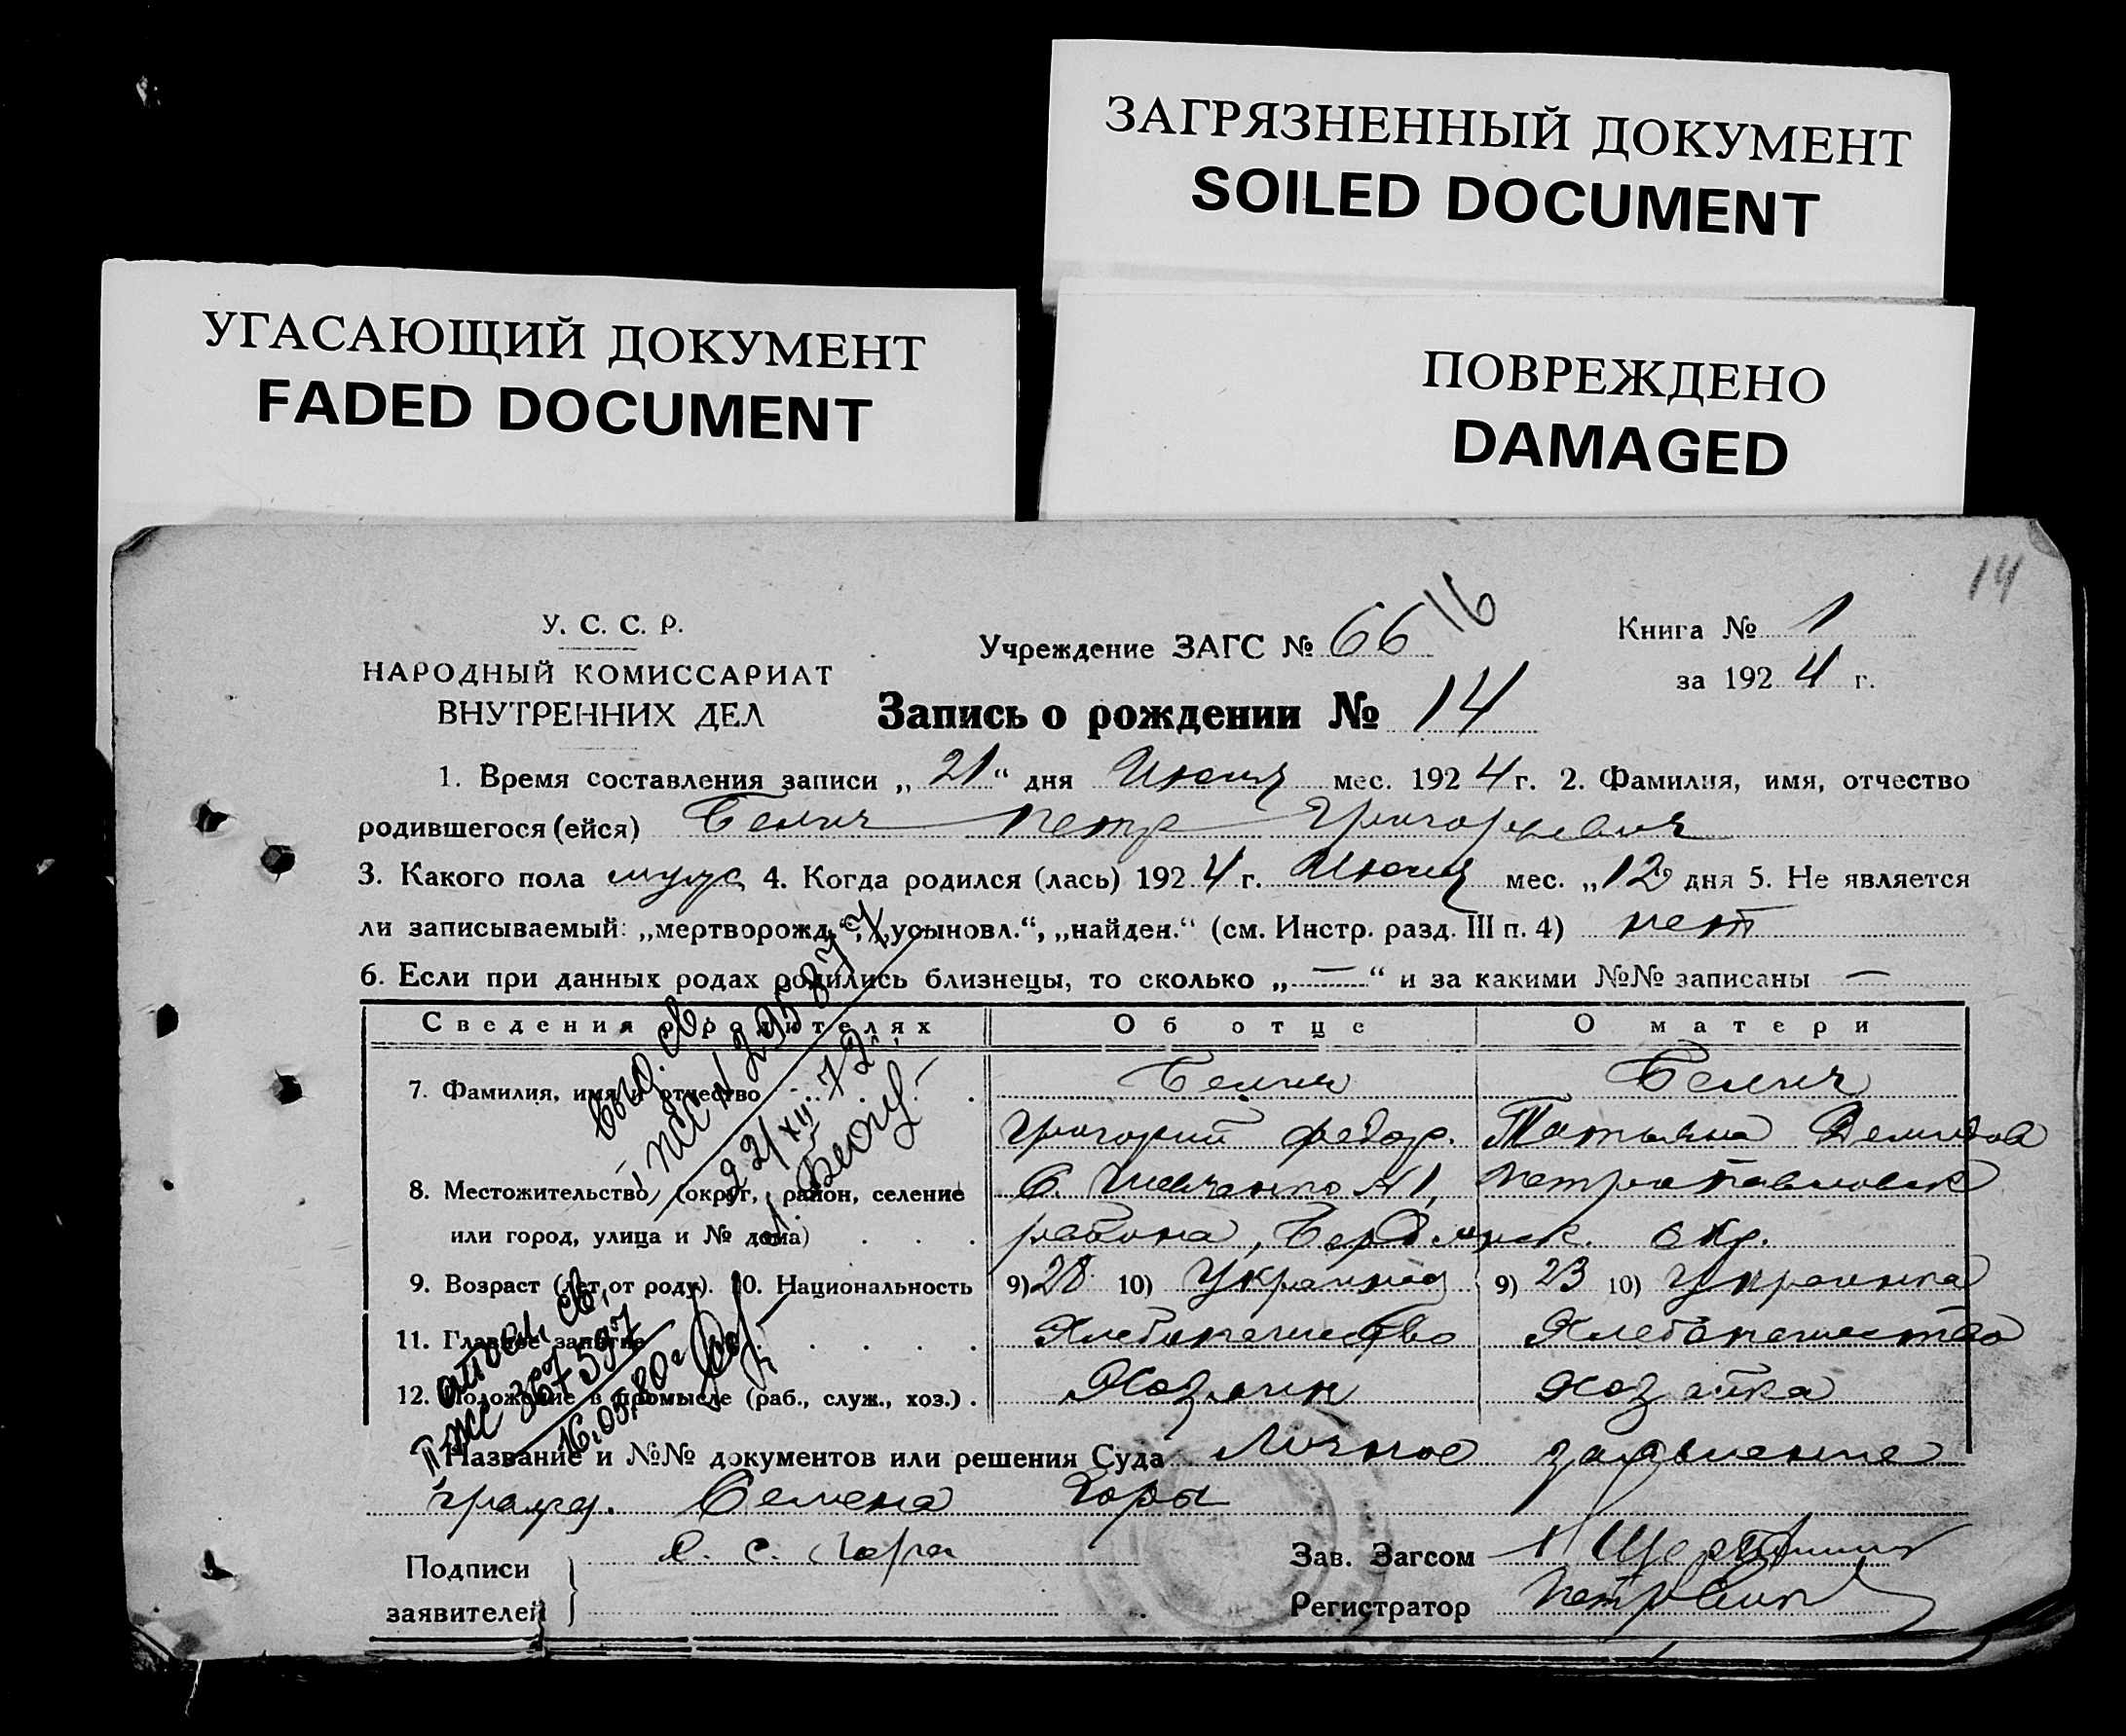 ЗАГРЯЗНЕННЫЙ ДОКУМЕНТ
SOILED DOCUMENT
УГАСАЮЩИЙ ДОКУМЕНТ
FADED DOCUMENT
ПОВРЕЖДЕНО
DAMAGED
14
У. С. С. Р.
НАРОДНЫЙ КОМИССАРИАТ
ВНУТРЕННИХ ДЕЛ
16
Учреждение ЗАГС № 66
Запись о рождении № 14
Книга № 1
за 1924 г.
1. Время составления записи „21“ дня Июня мес. 1924 г. 2. Фамилия, имя, отчество
родившегося (ейся) Белич Петр Григорьевич
3. Какого пола муж 4. Когда родился (лась) 1924 г. Июня мес. „12 дня 5. Не является
ли записываемый: „мертворожд.“, „усыновл.“, „найден.“ (см. Инстр. разд. III п. 4) нет
6. Если при данных родах родились близнецы, то сколько „—“ и за какими №№ записаны —
Сведения о родителях Об отце О матери
7. Фамилия, имя и отчество Белич Белич
Григорий Федор. Татьяна Демидов
8. Местожительство (округ, район, селение С. Шевченко №1, Петропавловск
или город, улица и № дома) района, Бердянск. окр.
9. Возраст (лет от роду). 10. Национальность 9) 28 10) Украинец 9) 23 10) Украинка
11. Главное занятие Хлебопашество Хлебопашество
12. Положение в промысле (раб., служ., хоз.) Хозяин Хозяйка
Название и №№ документов или решения Суда Личное заявление
гражд. Семена Горы
Подписи
заявителей
С. Гора
Зав. Загсом
Регистратор
22/XII-72
16.05.80